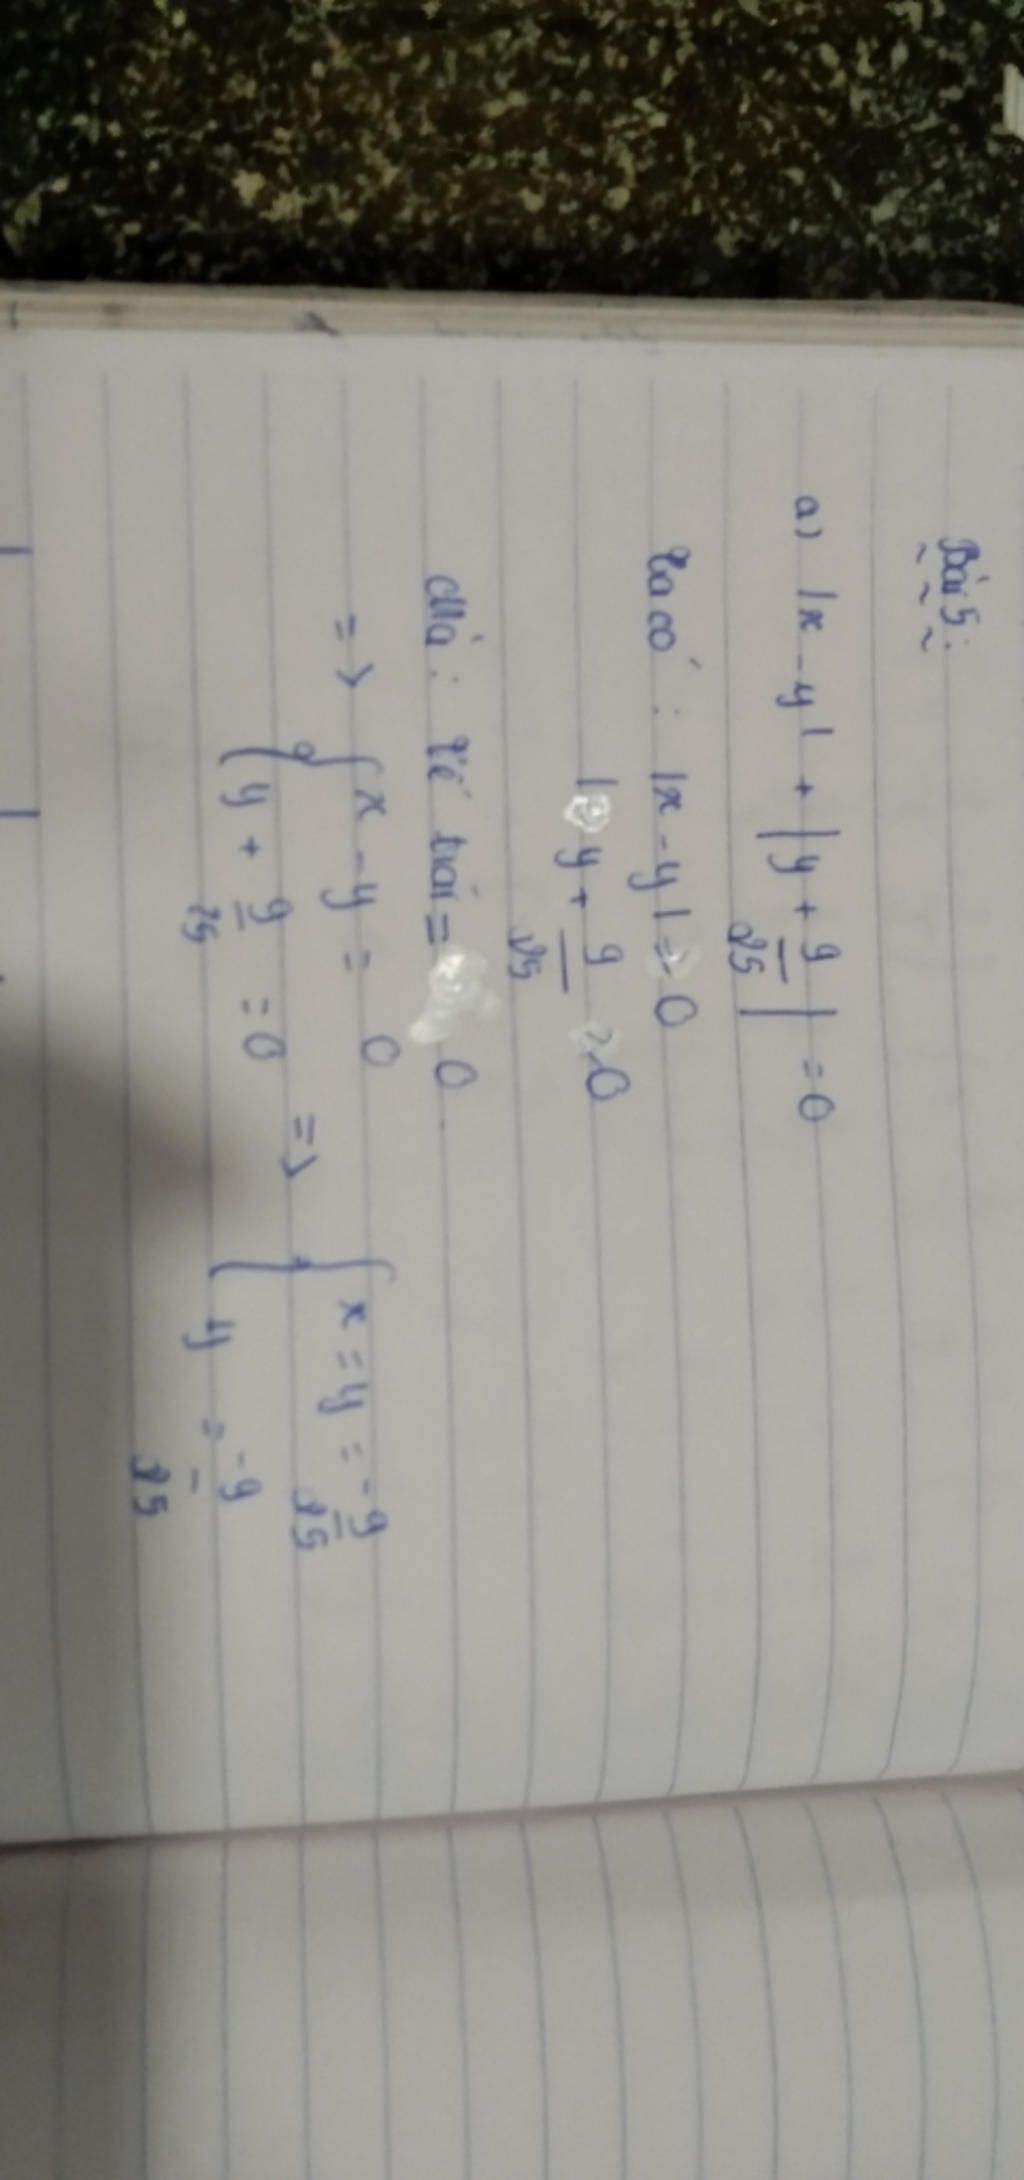 Bài 5:
a) |x - y| + |y + 9/25| = 0
Ta có: |x - y| ≥ 0
|y + 9/25 ≥ 0
Mà: Vế trái = 0
=> { x - y = 0
y + 9/25 = 0 => { x = y = -9/25
y = -9/25